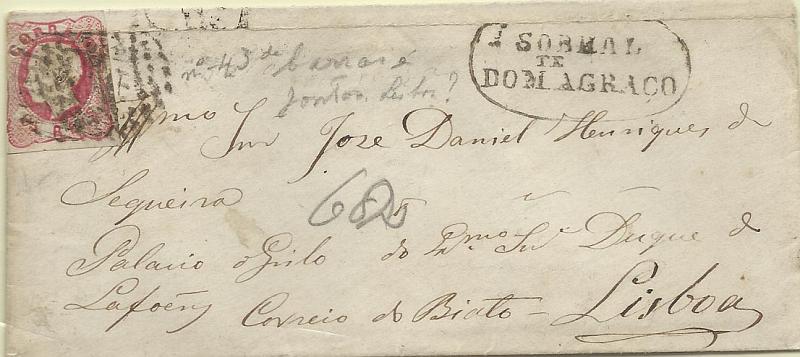 CORREIO
SOBRAL
TE
DOM AGRAÇO
nº 43 de
Illmo Snr Jose Daniel Henriques de
Sequeira
685
Palacio o Grilo do Exmo Snr Duque de
Lafoens Correio do Biato - Lisboa